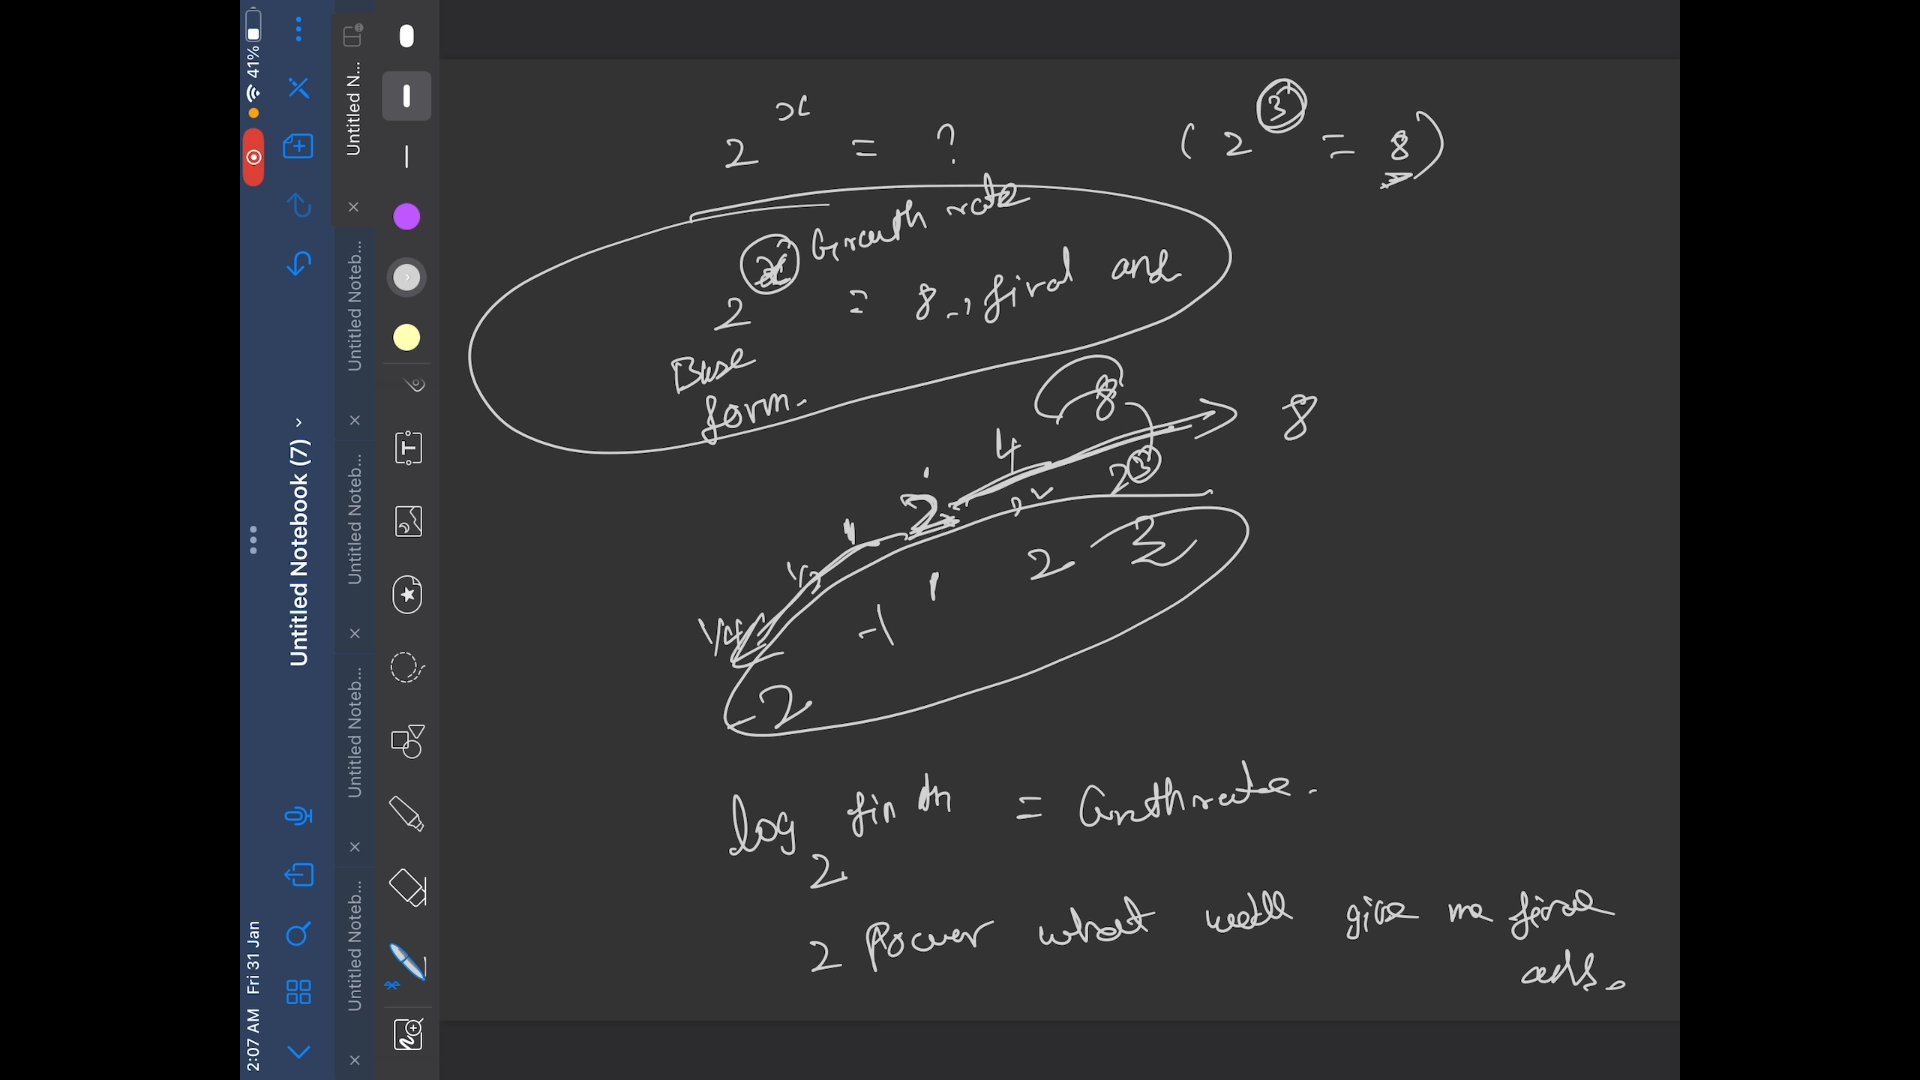 2:07 AM Fri 31 Jan
41%
Untitled Notebook (7)
Untitled N...
Untitled Noteb...
Untitled Noteb...
Untitled Noteb...
Untitled Noteb...
T
2^x = ?
(2^3 = 8)
Growth rate
2^x = 8 → final ans
Base
form.
8
8
4
2^3
2
1
1/2
1/4
-2 -1 1 2 3
log
2
= Growthrate.
2 Power what will give me final
ans.